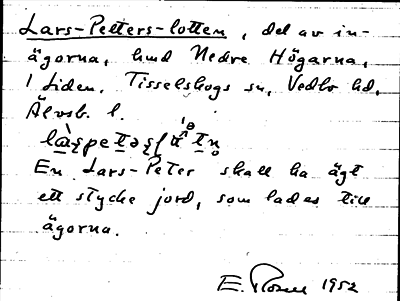 Lars-Petters-lotten, del av in-
ägorna, hmd Nedre Högarna,
1 Liden. Tisselskogs sn, Vedbo hd,
Älvsb. l.
En Lars-Peter skall ha ägt
ett stycke jord, som lades till
ägorna.
E. Rosen 1952